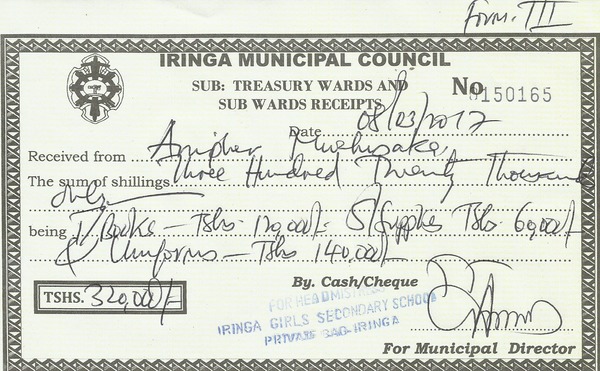 Form. III
IRINGA MUNICIPAL COUNCIL
SUB: TREASURY WARDS AND
SUB WARDS RECEIPTS
No 0150165
Date 08/03/2017
Received from
The sum of shillings Three Hundred Twenty Thousand
only
being T/Books – Tshs. 120,000/= S/Supplies Tshs. 60,000/=
& Uniforms – Tshs 140,000/=
By. Cash/Cheque
TSHS. 320,000/=
FOR HEADMISTRESS
IRINGA GIRLS SECONDARY SCHOOL
PRIVATE BAG-IRINGA
For Municipal Director